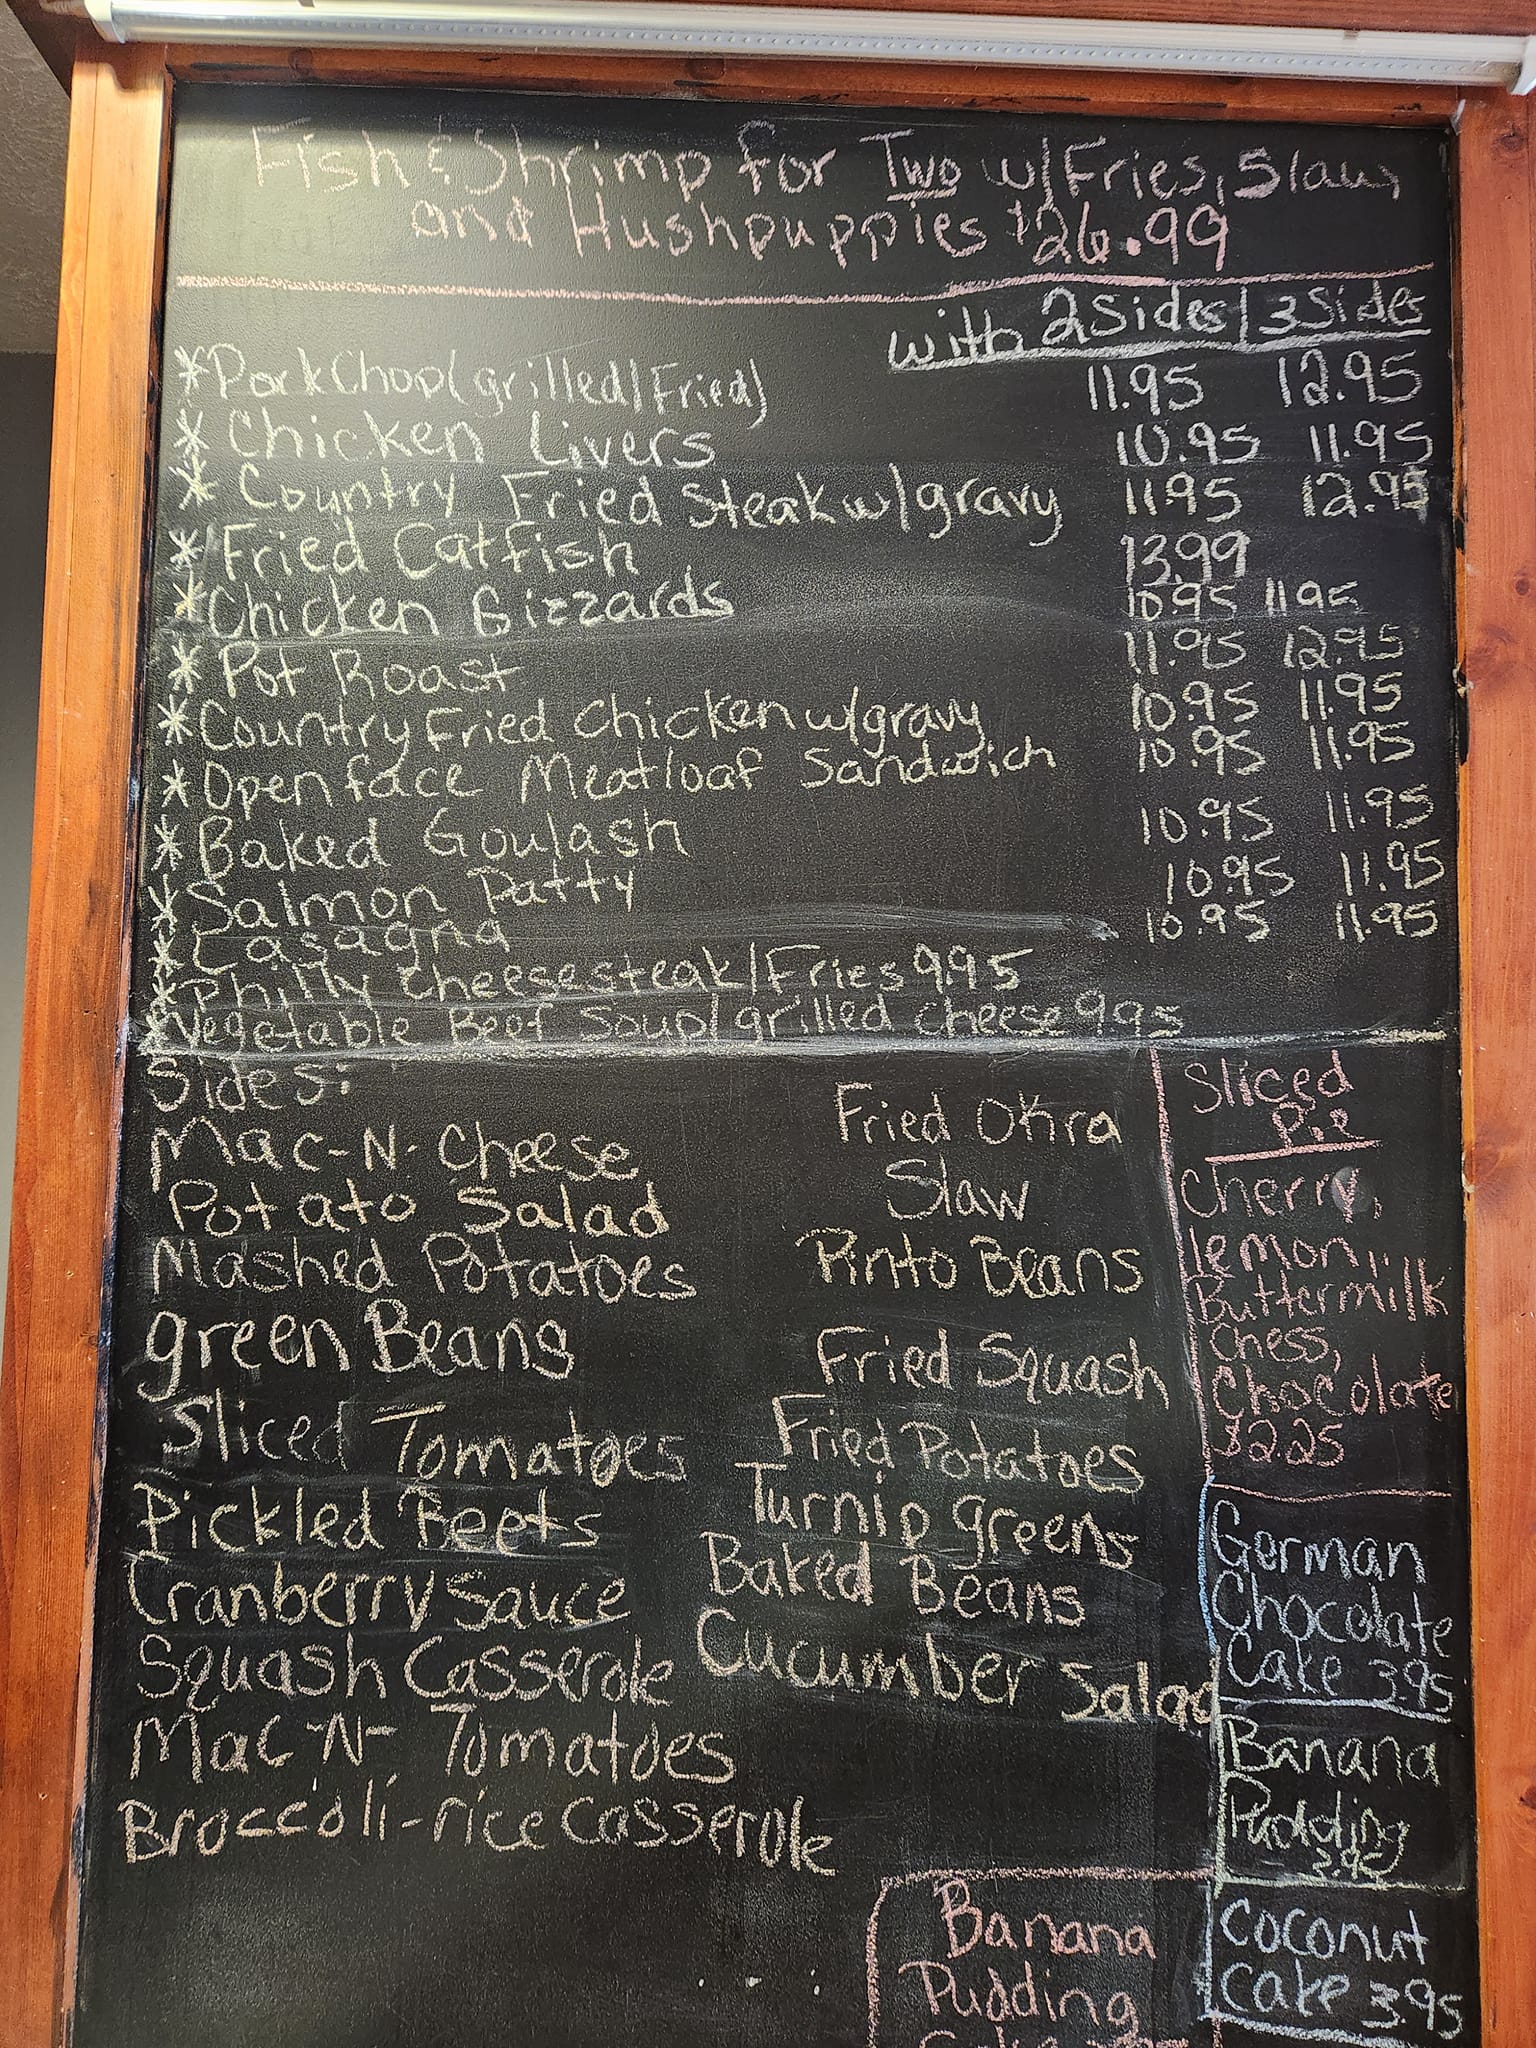 Fish & Shrimp for Two w/Fries, Slaw,
and Hushpuppies $26.99
with 2 Sides | 3 Sides
*Pork Chop (grilled/Fried) 11.95 12.95
* Chicken Livers 10.95 11.95
* Country Fried Steak w/gravy 11.95 12.95
* Fried Catfish 13.99
*Chicken Gizzards 10.95 11.95
* Pot Roast 11.95 12.95
*Country Fried Chicken w/gravy 10.95 11.95
*Open face Meatloaf Sandwich 10.95 11.95
*Baked Goulash 10.95 11.95
*Salmon Patty 10.95 11.95
*Lasagna 10.95 11.95
*Philly Cheesesteak/Fries 9.95
*Vegetable Beef Soup/grilled cheese 9.95
Sides:
Mac-N-Cheese
Potato Salad
Mashed Potatoes
green Beans
Sliced Tomatoes
Pickled Beets
Cranberry Sauce
Squash Casserole
Mac-N-Tomatoes
Broccoli-rice Casserole
Fried Okra
Slaw
Pinto Beans
Fried Squash
Fried Potatoes
Turnip greens
Baked Beans
Cucumber Salad
Sliced
Pie
Cherry,
lemon,
Buttermilk
Chess,
Chocolate
$2.25
German
Chocolate
Cake 3.95
Banana
Pudding
Coconut
Cake 3.95
Banana
Pudding